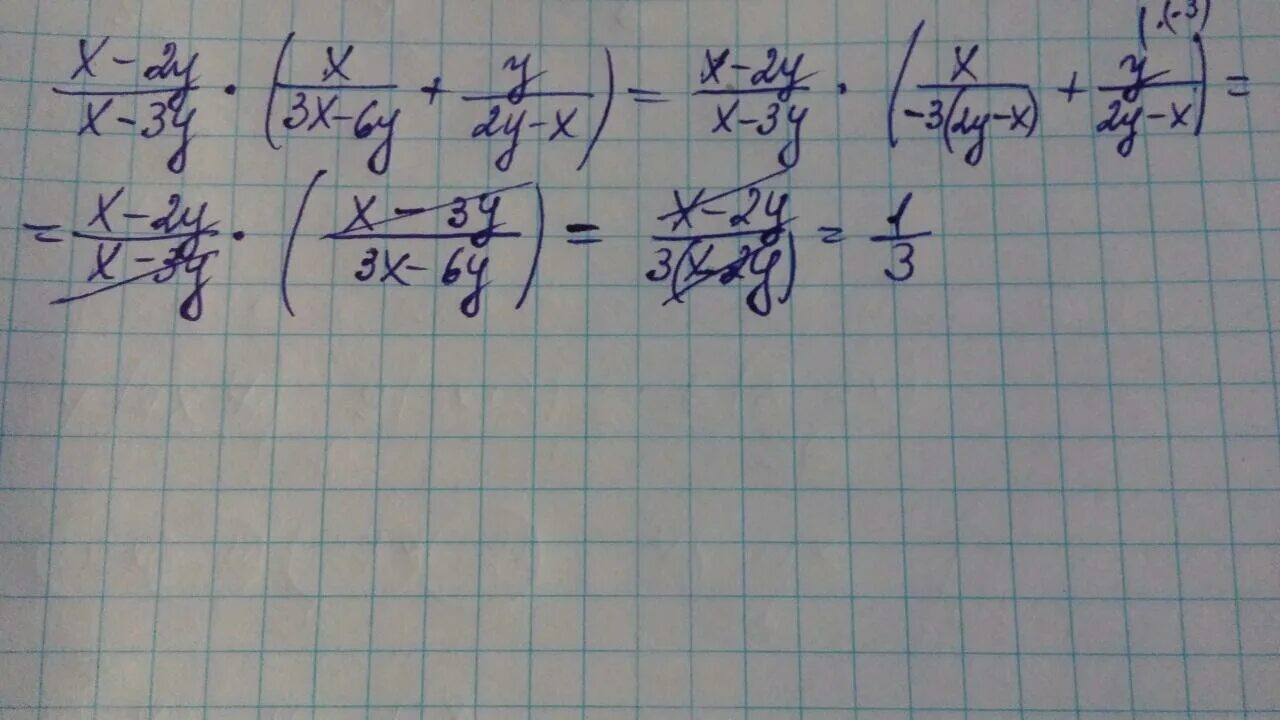 (x-2y)/(x-3y) · (x/(3x-6y) + y/(2y-x)) = (x-2y)/(x-3y) · (x/(-3(2y-x)) + y|·(-3)/(2y-x)) =
= (x-2y)/(x-3y) · ((x-3y)/(3x-6y)) = (x-2y)/(3(x-2y)) = 1/3